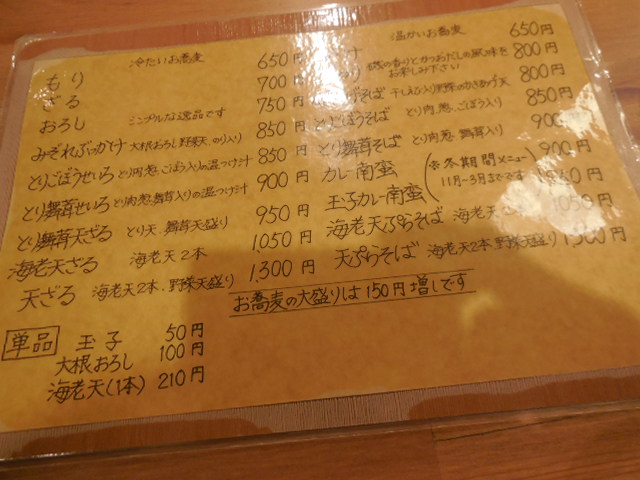 冷たいお蕎麦
もり 650円
ざる 700円
おろし シンプルな逸品です 750円
みぞれぶっかけ 大根おろし、野菜天、のり入り 850円
とりごぼうせいろ とり肉、葱、ごぼう入りの温つけ汁 850円
とり舞茸せいろ とり肉、葱、舞茸入りの温つけ汁 900円
とり舞茸天ざる とり天、舞茸天盛り 950円
海老天ざる 海老天2本 1,050円
天ざる 海老天2本、野菜天盛り 1,300円
温かいお蕎麦
650円
香りとかつおだしの風味を
お楽しみ下さい 800円
そば 干しえび入り 800円
とりごぼうそば とり肉、葱、ごぼう入り 850円
とり舞茸そば とり肉、葱、舞茸入り 900円
カレー南蛮 900円
玉子カレー南蛮
(※冬期間メニュー
11月~3月までです)
海老天ぷらそば 海老天 1050円
天ぷらそば 海老天2本、野菜天盛り 1300円
お蕎麦の大盛りは150円増しです
単品 玉子 50円
大根おろし 100円
海老天(1本) 210円